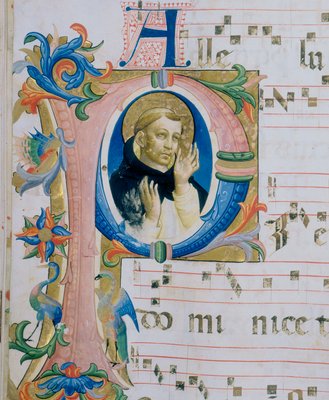 Alle lu
PIe
do mi nice t